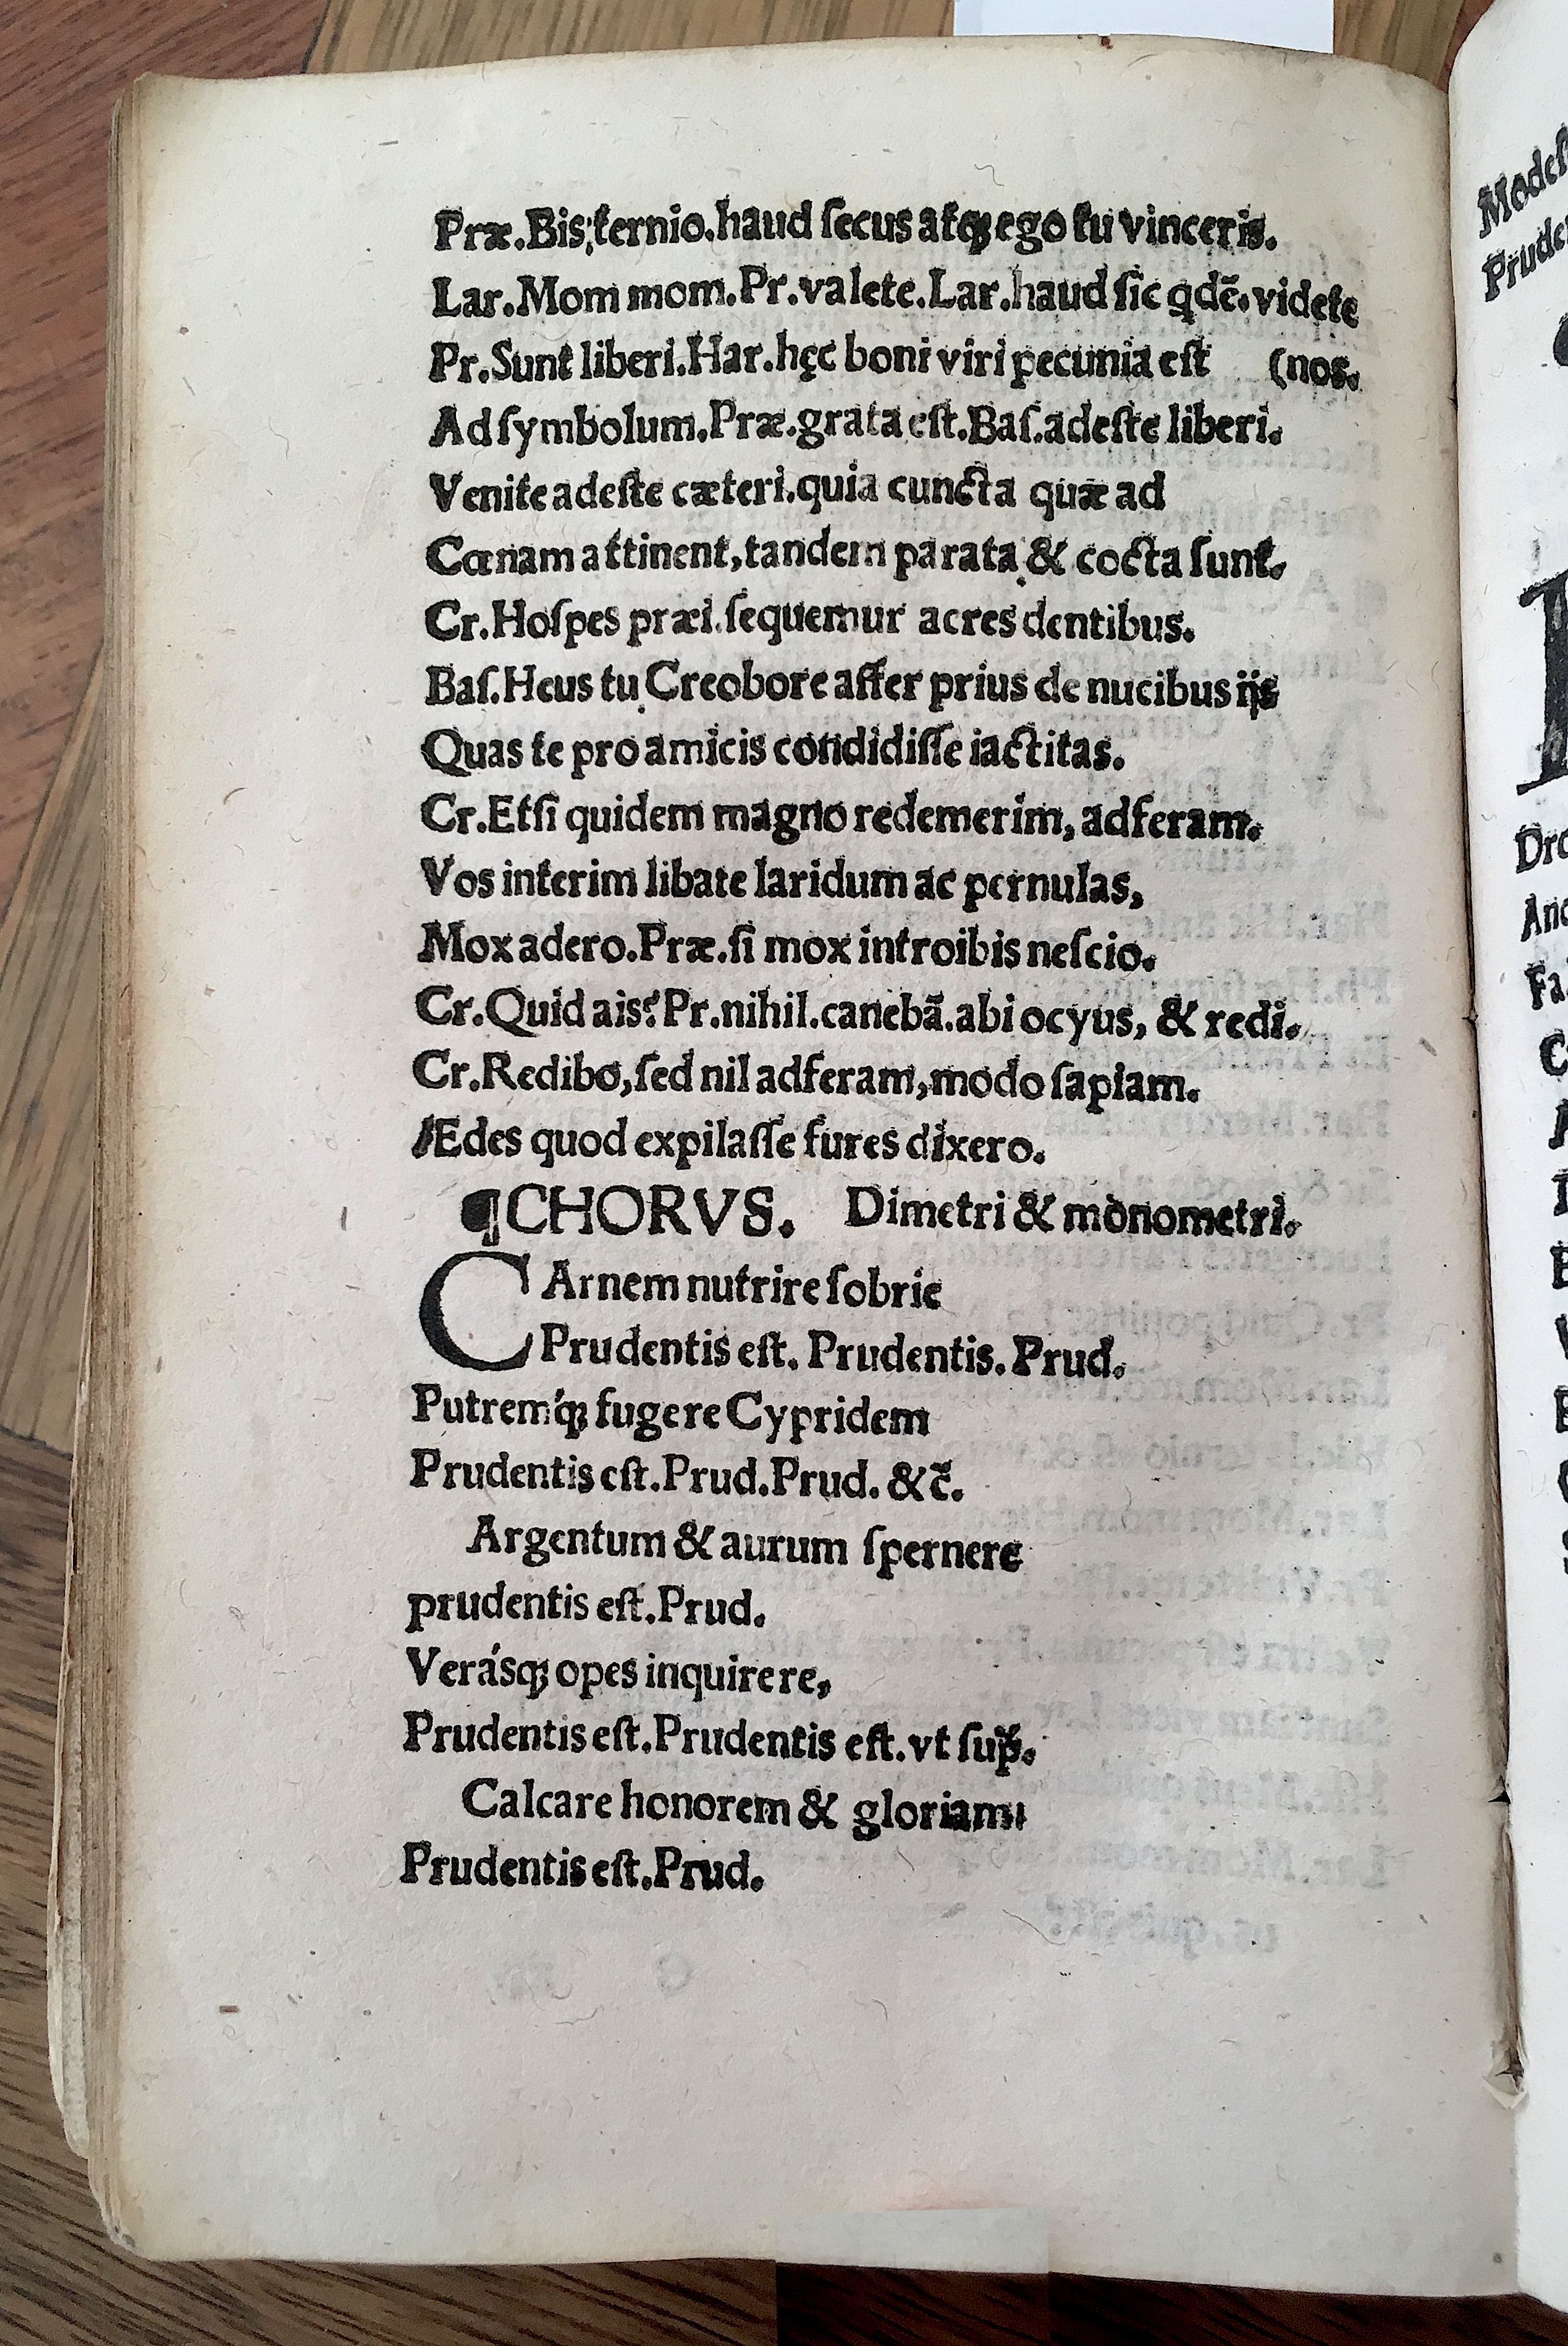 Præ.Bis;ternio.haud ſecus atqꝫ ego tu vinceris.
Lar.Mom mom.Pr.valete.Lar.haud ſic qdẽ.videte
Pr.Sunt liberi.Har.hęc boni viri pecunia eſt (nos.
Ad ſymbolum.Præ.grata eſt.Baſ.adeſte liberi.
Venite adeſte cæteri.quia cuncta quæ ad
Cœnam attinent,tandem parata & cocta ſunt.
Cr.Hoſpes præi.ſequemur acres dentibus.
Baſ.Heus tu Creobore affer prius de nucibus iis
Quas te pro amicis condidiſſe iactitas.
Cr.Etſi quidem magno redemerim, adferam.
Vos interim libate laridum ac pernulas,
Mox adero.Præ.ſi mox introibis neſcio.
Cr.Quid ais?Pr.nihil.canebã.abi ocyus, & redi.
Cr.Redibo,ſed nil adferam,modo ſapiam.
Ædes quod expilaſſe fures dixero.
¶CHORVS. Dimetri & monometri.
CArnem nutrire ſobrie
Prudentis eſt. Prudentis. Prud.
Putrem'qꝫ fugere Cypridem
Prudentis eſt.Prud.Prud. &c̃.
Argentum & aurum ſpernere
prudentis eſt.Prud.
Verásqꝫ opes inquirere,
Prudentis eſt.Prudentis eſt.vt ſup̃.
Calcare honorem & gloriam
Prudentis eſt.Prud.